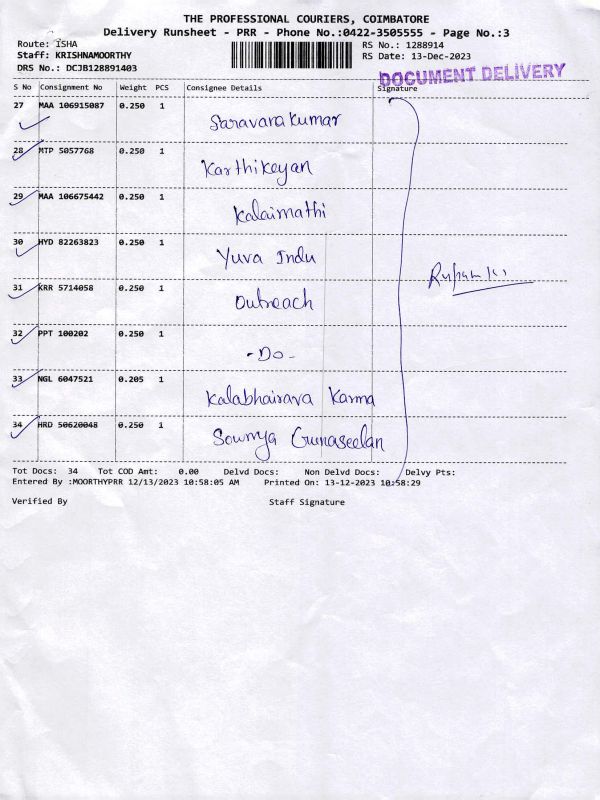 THE PROFESSIONAL COURIERS, COIMBATORE
Delivery Runsheet - PRR - Phone No.:0422-3505555 - Page No.:3
Route: ISHA RS No.: 1288914
Staff: KRISHNAMOORTHY RS Date: 13-Dec-2023
DRS No.: DCJB128891403
DOCUMENT DELIVERY
S No Consignment No Weight PCS Consignee Details Signature
27 MAA 106915087 0.250 1
Saravanakumar
28 MTP 5057768 0.250 1
Karthikeyan
29 MAA 106675442 0.250 1
Kalaimathi
30 HYD 82263823 0.250 1
Yuva Indu
31 KRR 5714058 0.250 1
Outreach
32 PPT 100202 0.250 1
-Do-
33 NGL 6047521 0.205 1
Kalabhairava Karma
34 HRD 50620048 0.250 1
Sowmya Gunaseelan
Tot Docs: 34 Tot COD Amt: 0.00 Delvd Docs: Non Delvd Docs: Delvy Pts:
Entered By :MOORTHYPRR 12/13/2023 10:58:05 AM Printed On: 13-12-2023 10:58:29
Verified By Staff Signature